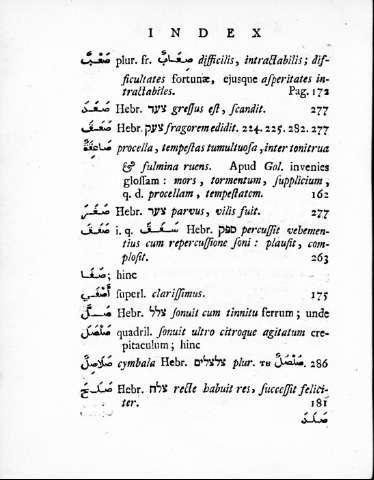 INDEX
صَعْبٌ plur. fr. صِعَابٌ difficilis, intractabilis; dif-
ficultates fortunæ, ejusque asperitates in-
tractabiles. Pag. 172
صَعَدَ Hebr. צער gressus est, scandit. 277
صَعَقَ Hebr. צעק fragorem edidit. 224. 225. 282. 277
صَاعِقَةٌ procella, tempestas tumultuosa, inter tonitrua
& fulmina ruens. Apud Gol. invenies
glossam: mors, tormentum, supplicium,
q. d. procellam, tempestatem. 162
صَغُرَ Hebr. צער parvus, vilis fuit. 277
صَفَقَ i. q. سَفَقَ Hebr. ספק percussit vehemen-
tius cum repercussione soni: plausit, com-
plosit. 263
صَفَا; hinc
أَصْفَى superl. clarissimus. 175
صَلَّ Hebr. צלל sonuit cum tinnitu ferrum; unde
صَلْصَلَ quadril. sonuit ultro citroque agitatum cre-
pitaculum; hinc
صَلَاصِلُ cymbala Hebr. צלצלים plur. τȣ صَلْصَلٌ. 286
صَلَحَ Hebr. צלח recte habuit res, successit felici-
ter. 181
صَلَدَ